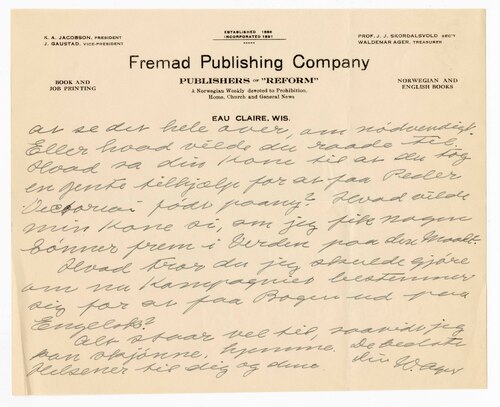 K. A. JACOBSON, PRESIDENT
J. GAUSTAD, VICE-PRESIDENT
ESTABLISHED 1886
INCORPORATED 1891
PROF. J. J. SKORDALSVOLD SEC'Y
WALDEMAR AGER, TREASURER
Fremad Publishing Company
BOOK AND
JOB PRINTING
PUBLISHERS OF "REFORM"
A Norwegian Weekly devoted to Prohibition,
Home, Church and General News
NORWEGIAN AND
ENGLISH BOOKS
EAU CLAIRE, WIS.
at se det hele over, om nødvendigt.
Eller hvad vilde du raade til,
Hvad sa din Kone til at du tog
en Jente tilhjælp for at faa Peder
Victorious født paany? Hvad vilde
min Kone si, om jeg fik nogen
Sønner frem i Verden paa den Maate.
Hvad tror du jeg skulde gjøre
om nu Kompagniet bestemmer
sig for at faa Bogen ud paa
Engelsk?
Alt staar vel til, saavidt jeg
kan skjønne, hjemme. De bedste
Hilsener til dig og dine
din W. Ager